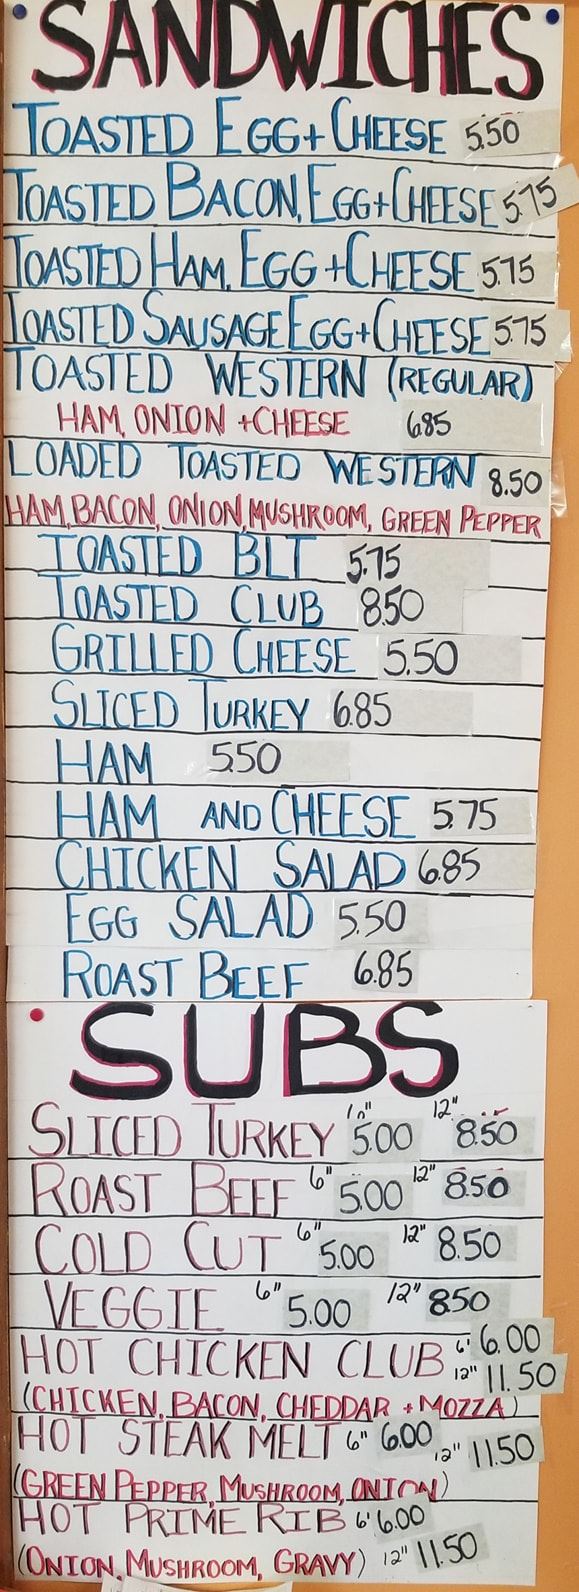 SANDWICHES
TOASTED EGG + CHEESE 5.50
TOASTED BACON, EGG + CHEESE 5.75
TOASTED HAM, EGG + CHEESE 5.75
TOASTED SAUSAGE EGG + CHEESE 5.75
TOASTED WESTERN (REGULAR)
HAM, ONION + CHEESE 6.85
LOADED TOASTED WESTERN 8.50
HAM, BACON, ONION, MUSHROOM, GREEN PEPPER
TOASTED BLT 5.75
TOASTED CLUB 8.50
GRILLED CHEESE 5.50
SLICED TURKEY 6.85
HAM 5.50
HAM AND CHEESE 5.75
CHICKEN SALAD 6.85
EGG SALAD 5.50
ROAST BEEF 6.85
SUBS
SLICED TURKEY 6" 5.00 12" 8.50
ROAST BEEF 6" 5.00 12" 8.50
COLD CUT 6" 5.00 12" 8.50
VEGGIE 6" 5.00 12" 8.50
HOT CHICKEN CLUB 6" 6.00
12" 11.50
(CHICKEN, BACON, CHEDDAR + MOZZA)
HOT STEAK MELT 6" 6.00 12" 11.50
(GREEN PEPPER, MUSHROOM, ONION)
HOT PRIME RIB 6" 6.00
(ONION, MUSHROOM, GRAVY) 12" 11.50